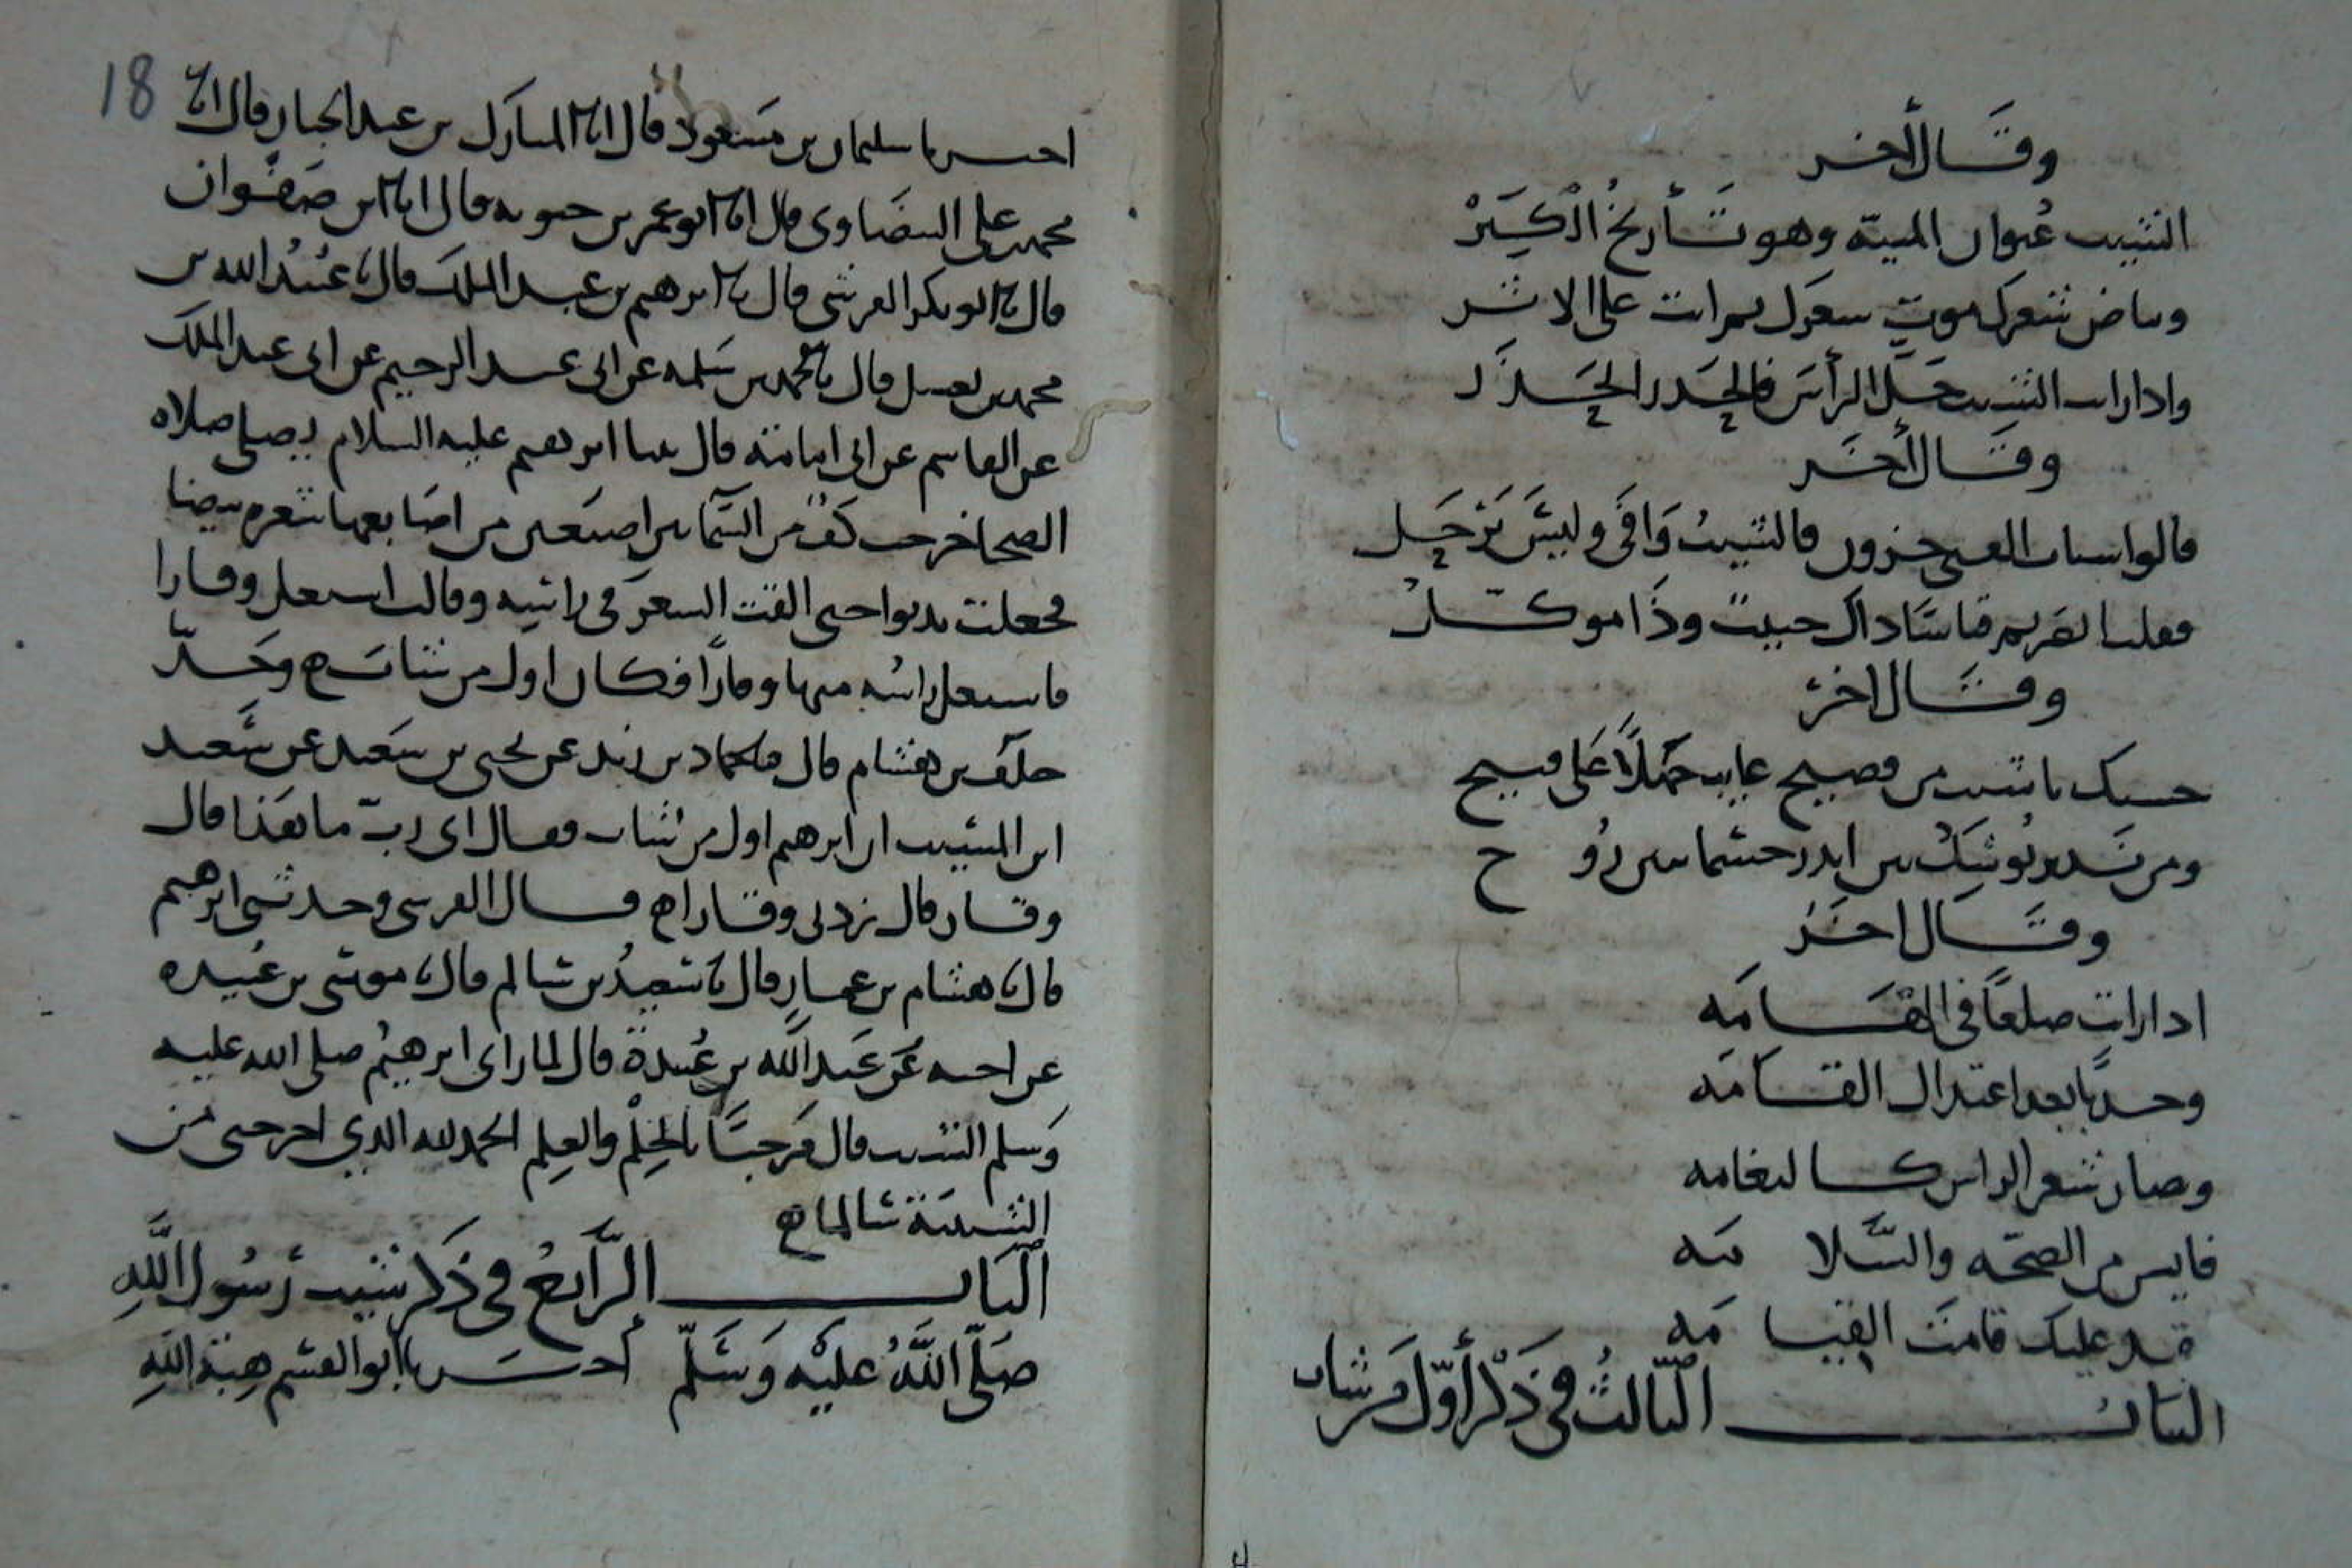 وقال أخر
الشيب عنوان المنية وهو تأريخ الكبر
وبياض شعرك موت شعرك ثم انت على الاثر
واذا رايت الشيب حل الرأس فالحذر الحذر
وقال أخر
قالوا اسباب الفتى حزون فالشيب وافى وليس يرحل
فقلت القريم قاساد اك حبيب وذا موكل
وقال اخر
حسبك يا شيب من قصيح عايب جهلا على قبيح
ومن يوشك بين
وقال اخر
اذا رايت صلعا في الهامه
وحدبا بعد اعتدال القامه
وصار شعر الراس كالنغامه
فايس من الصحه والسلامه
قد عليك قامت القيامه
الباب الثالث في ذكر أول من شاب
18
اخبرنا سليمان بن مسعود قال انا المبارك بن عبد الجبار قال انا
محمد بن علي البيضاوى قال انا ابو عمر بن حيويه قال انا ابن صفوان
قال نا ابو بكر القرشي قال نا ابرهيم بن عبد الملك قال نا عبيد الله بن
محمد بن نفيل قال نا محمد بن سلمه عن ابي عبد الرحيم عن ابي عبد الملك
عن القاسم عن ابي امامة قال بينا ابرهيم عليه السلام يصلي صلاه
الضحا خرجت كف من السماء بين اصبعين من اصابعها شعره بيضا
فجعلت تدنوا حتى القت الشعر في راسه وقالت اشتعل وقارا
فاشتعل راسه منها وقارا فكان اول من شاب ه وحدثنا
خلف بن هشام قال نا حماد بن زيد عن يحيى بن سعيد عن سعيد
ابن المسيب ان ابرهيم اول من شاب فقال اى رب ما هذا قال
وقار قال زدنى وقارا ه قال القرشى وحدثنى ابرهيم
قال نا هشام بن عمار قال نا سعيد بن سالم قال نا موسى بن عبيده
عن اخيه عن عبد الله بن عبيدة قال لما راى ابرهيم صلى الله عليه
وسلم الشيب قال مرحبا بالحلم والعلم الحمد لله الذي اخرجنى من
الشبيبة سالما ه
الباب الرابع في ذكر شيب رسول الله
صلى الله عليه وسلم أخبرنا ابو القسم هبة الله